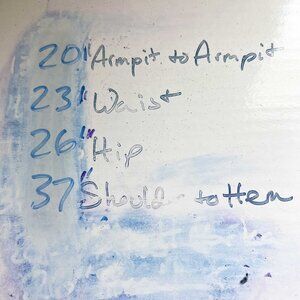 20" Armpit to Armpit
23" Waist
26" Hip
37" Shoulder to Hem